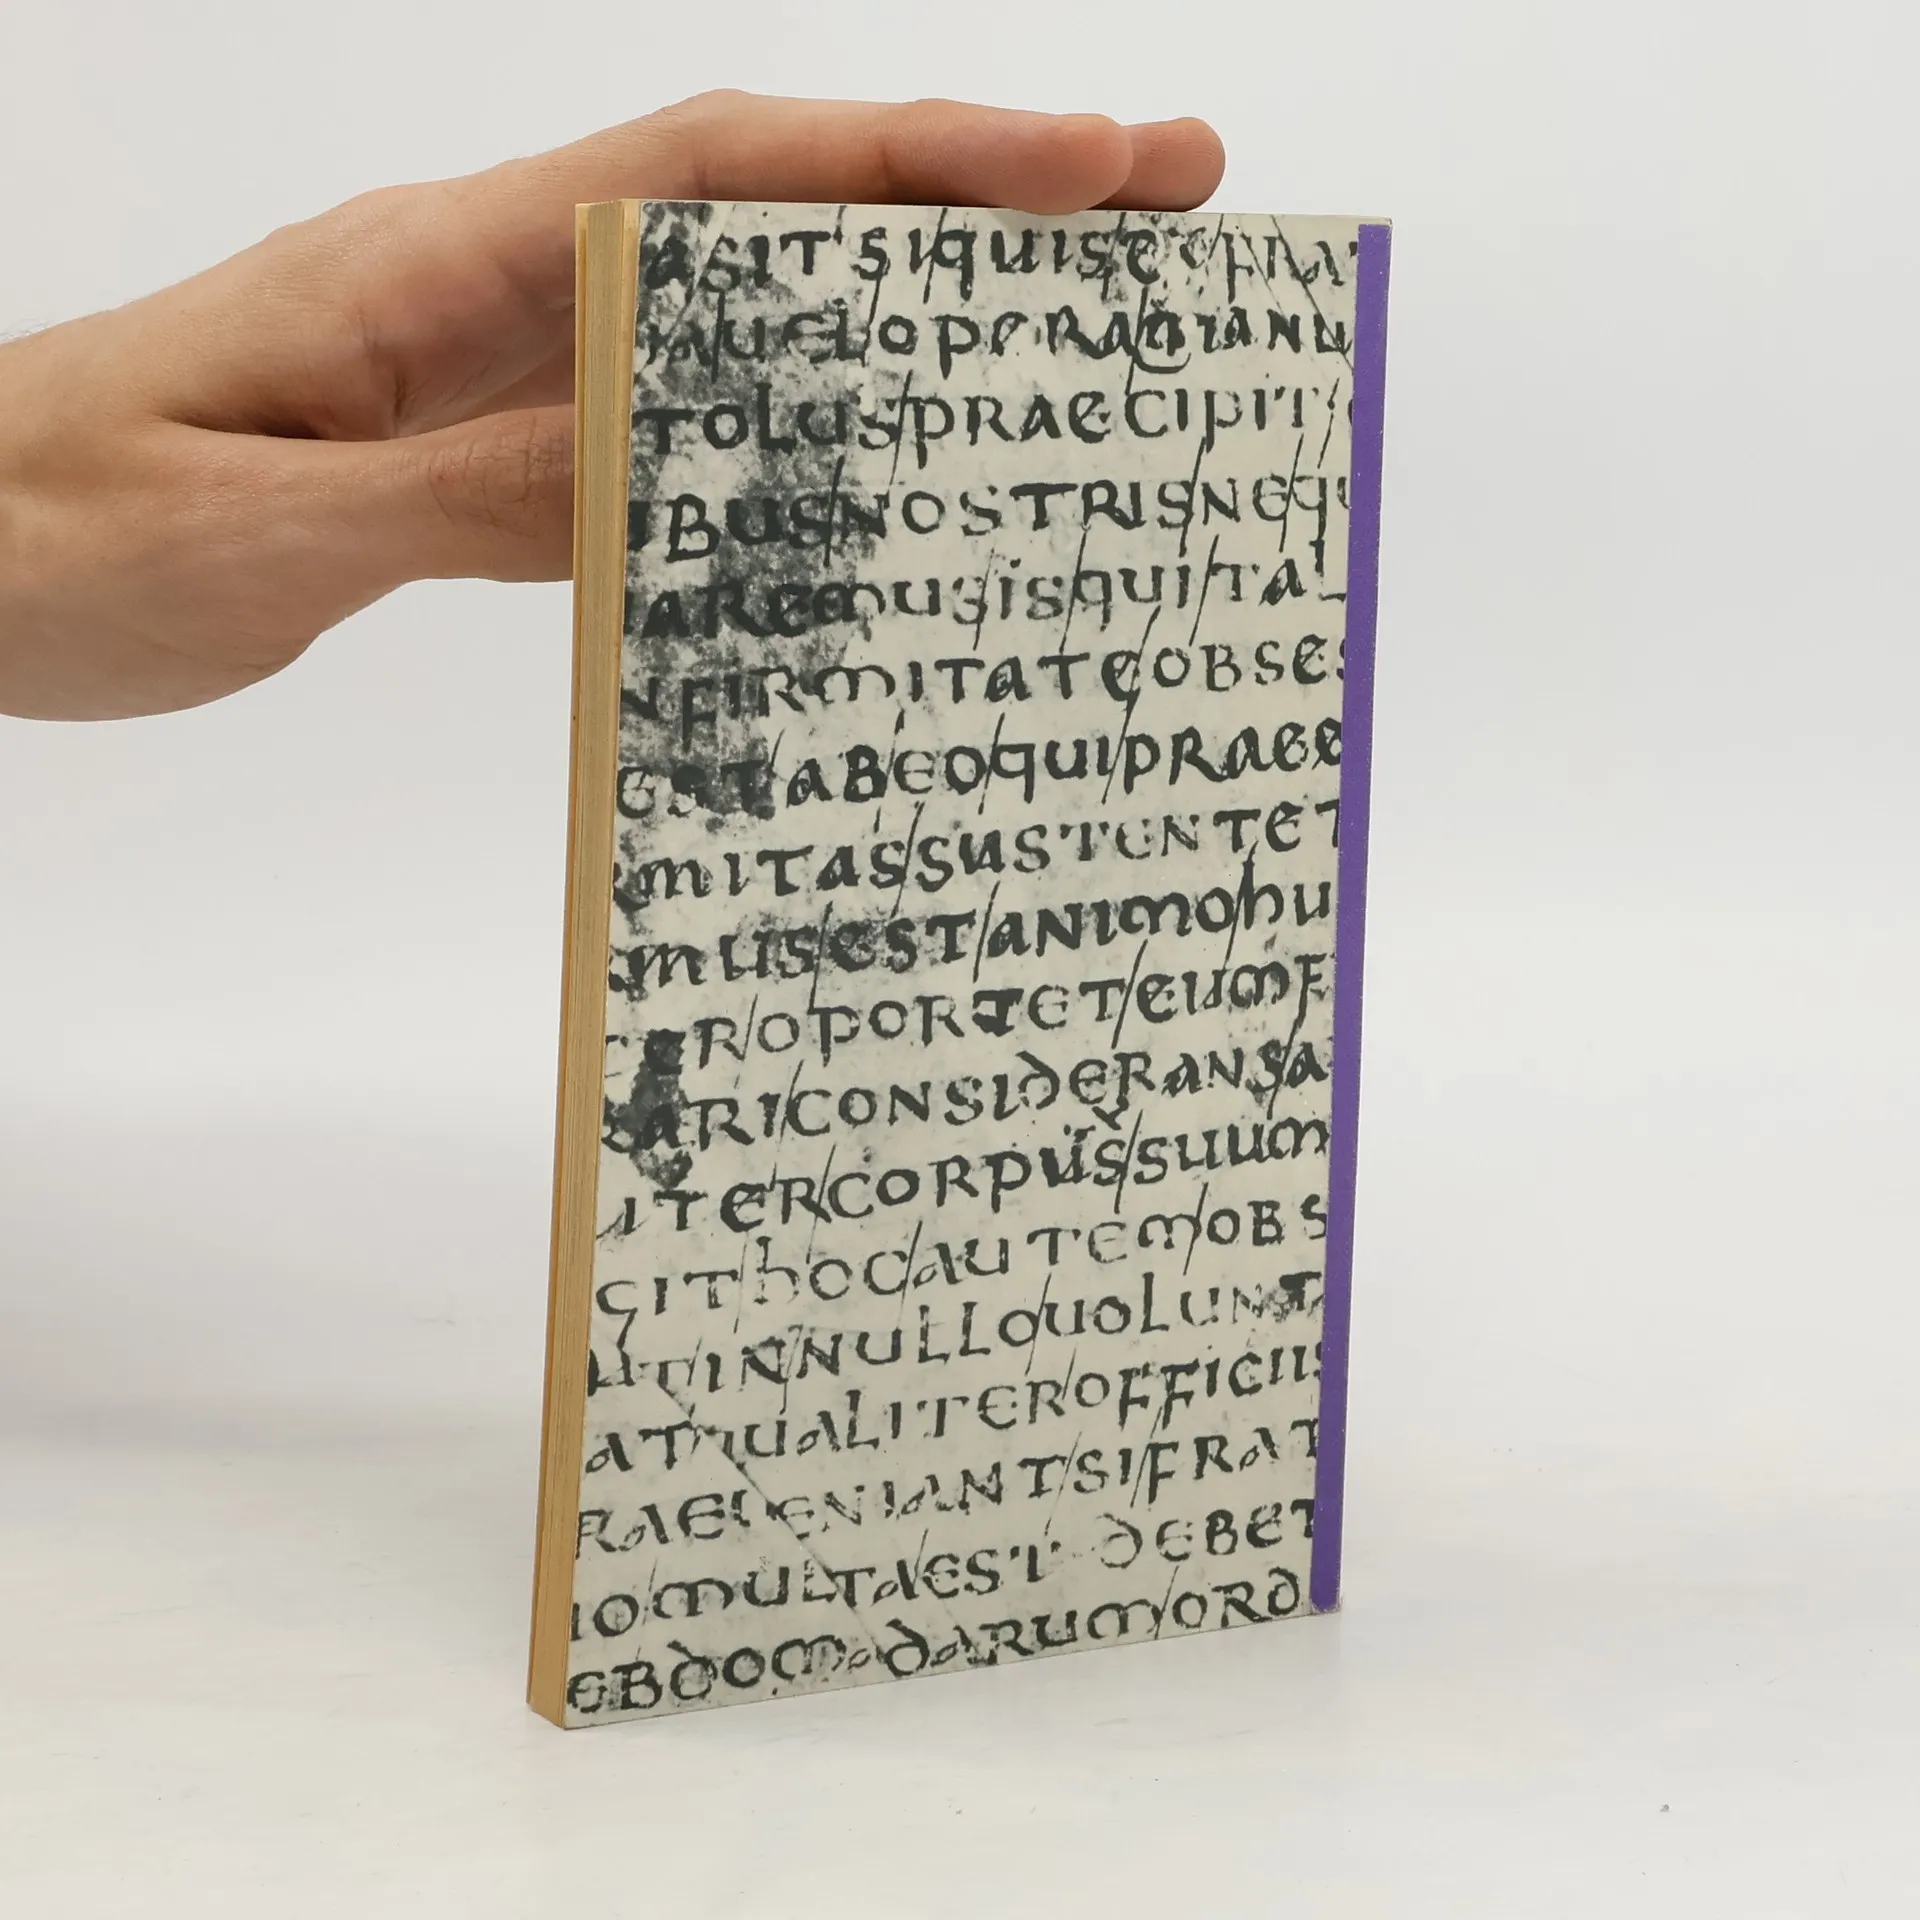 ASIT SI QUIS E
UEL OPERA
TOLUS PRAECIPIT
BUS NOSTRIS NEQU
ARemus is qui TAL
NFIRMITATE OBSES
EST AB EO QUI PRAEE
MITAS SUSTENTET
MUS EST ANIMO hu
ER OPORTET EUM F
ARI CONSIDERANS A
ITER CORPUS SUUM
GIT hOC AUTEM OBS
UT IN NULLO UOLUNT
ALITER OFFICIIS
ANT SI FRAT
IO MULTA EST DEBET
EBDOMADARUM ORD